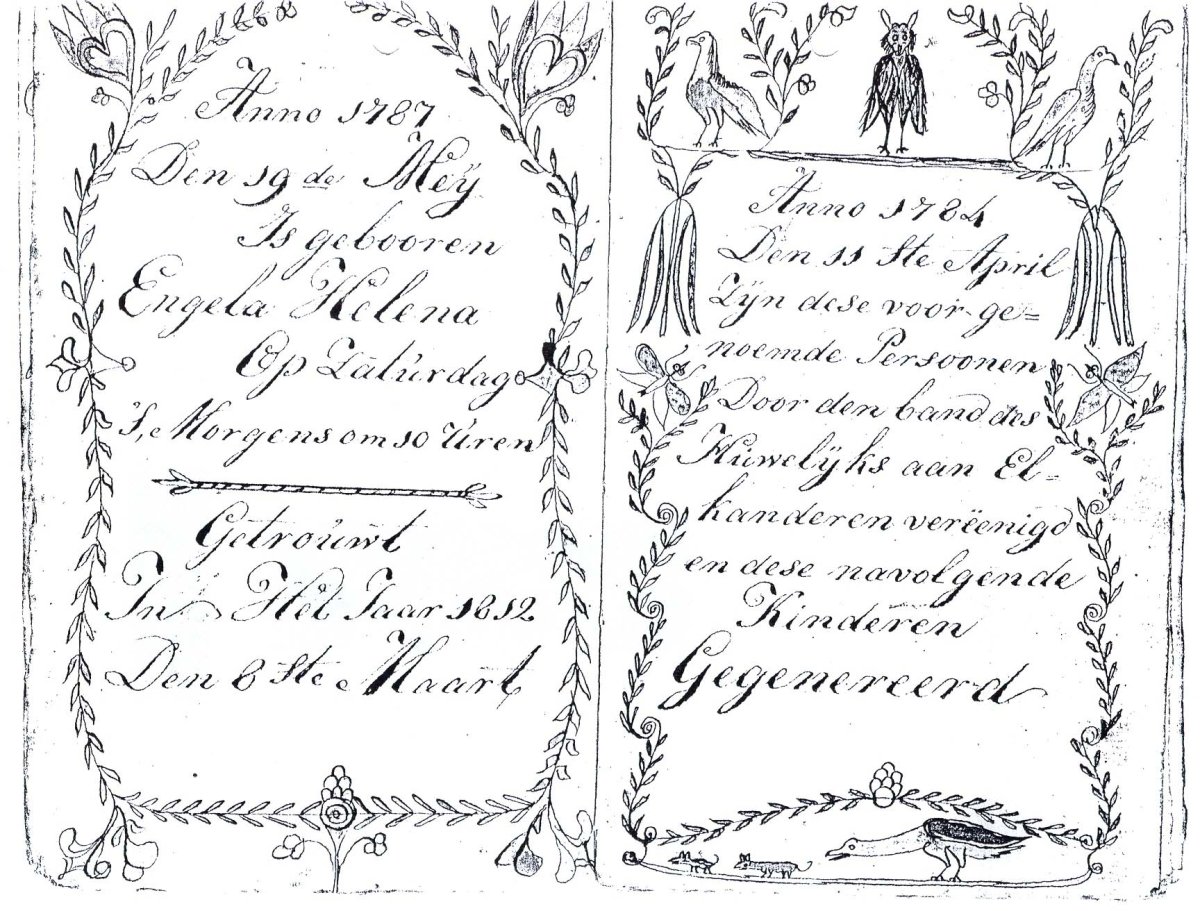 Anno 1787
Den 19 de Meÿ
Is gebooren
Engela Helena
Op Zaturdag
's, Morgens om 10 Uren
Getrouwt
In Het Jaar 1812
Den 8 ste Maart
Anno 1784
Den 11 ste April
Zÿn dese voor ge=
noemde Persoonen
Door den band des
Huwelÿks aan El-
kanderen verëenigd
en dese navolgende
Kinderen
Gegenereerd